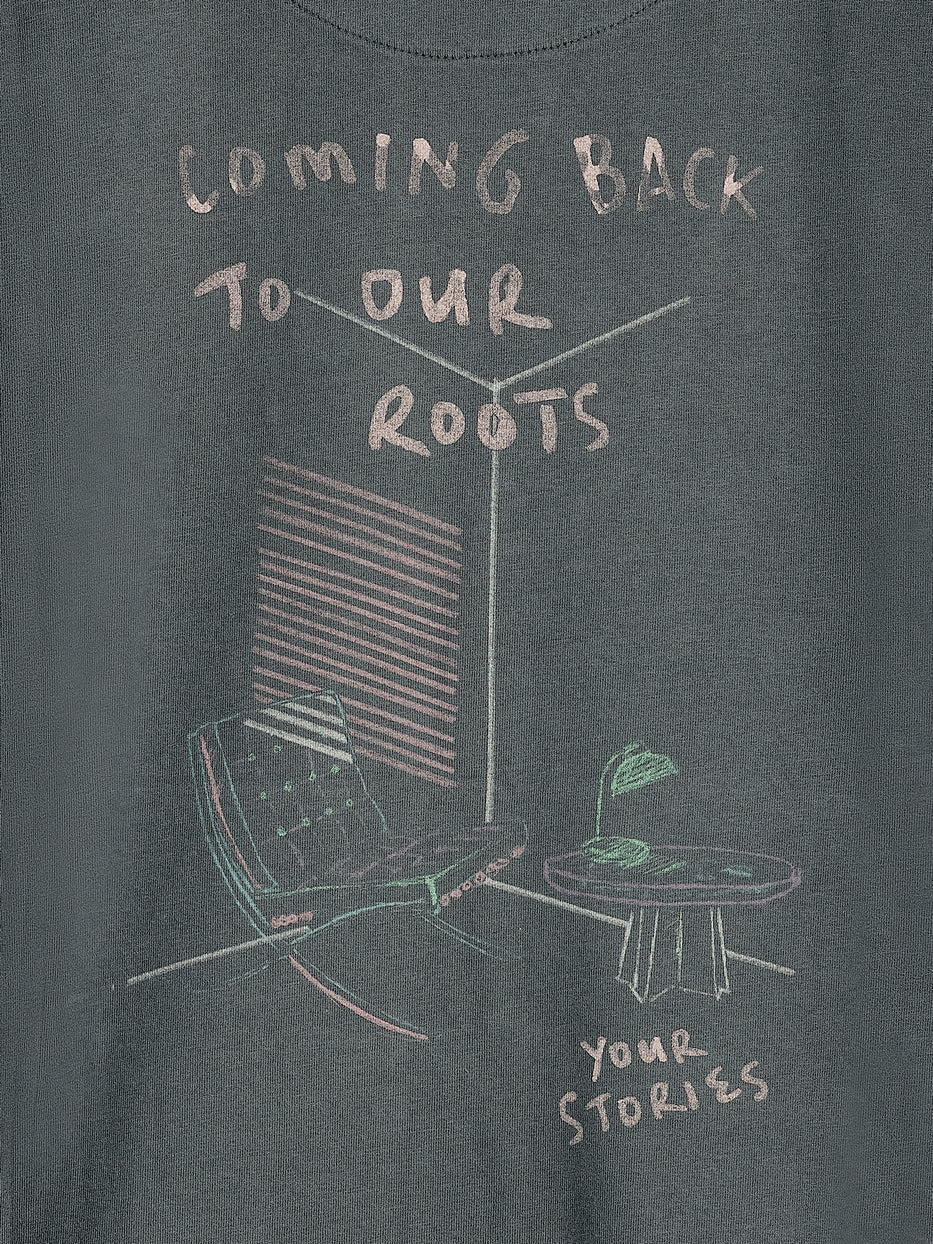 COMING BACK
TO OUR
ROOTS
YOUR
STORIES